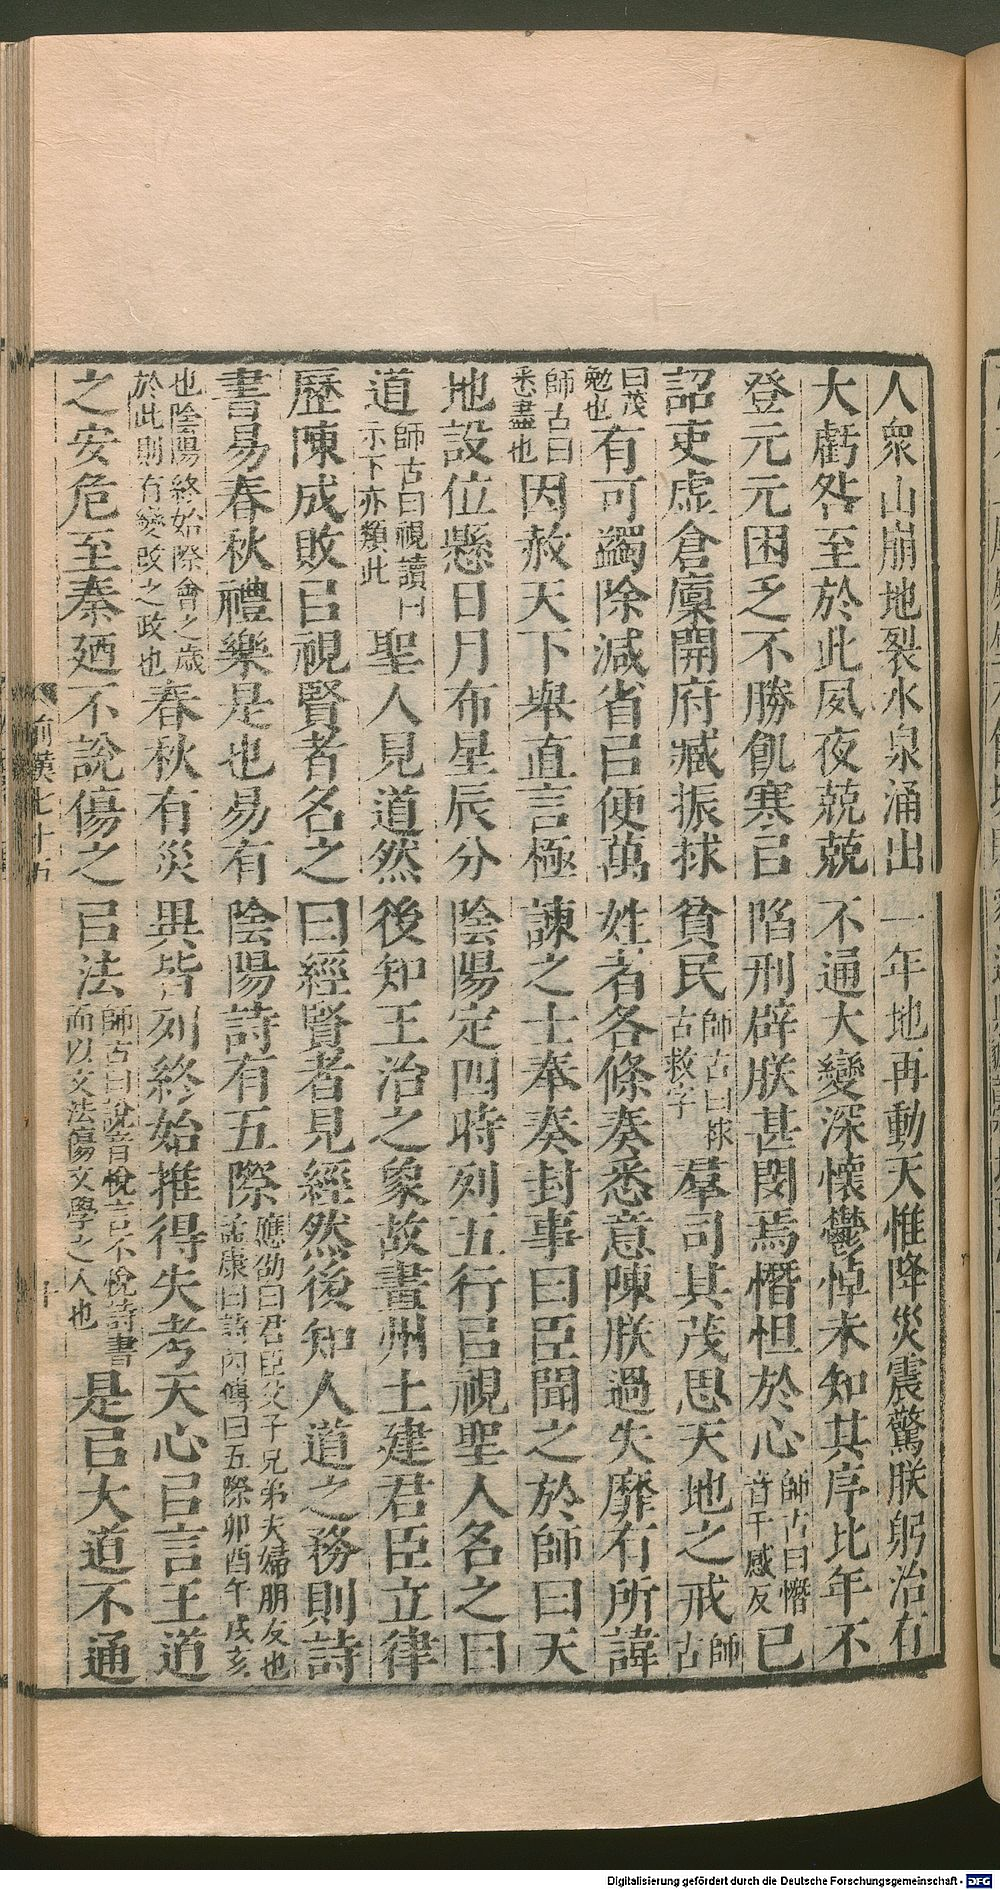 人衆山崩地裂水泉涌出一年地再動天惟降災震驚朕躬治有
大虧咎至於此夙夜兢兢不通大變深懷鬱悼未知其序比年不
登元元困乏不勝飢寒㠯陷刑辟朕甚閔焉憯怛於心師古曰憯音千感反已
詔吏虛倉廩開府臧振捄貧民師古曰捄古救字羣司其茂思天地之戒師古
曰茂勉也有可蠲除減省㠯便萬姓者各條奏悉意陳朕過失靡有所諱
師古曰悉盡也因赦天下舉直言極諫之士奉奏封事曰臣聞之於師曰天
地設位懸日月布星辰分陰陽定四時列五行㠯視聖人名之曰
道師古曰視讀曰示下亦類此聖人見道然後知王治之象故畫州土建君臣立律
歷陳成敗㠯視賢者名之曰經賢者見經然後知人道之務則詩
書易春秋禮樂是也易有陰陽詩有五際應劭曰君臣父子兄弟夫婦朋友也孟康曰詩內傳曰五際卯酉午戌亥
也陰陽終始際會之歲於此則有變改之政也春秋有災異皆列終始推得失考天心㠯言王道
之安危至秦廼不說傷之㠯法師古曰說音悅言不悅詩書而以文法傷文學之人也是㠯大道不通
前漢七十五
十
Digitalisierung gefördert durch die Deutsche Forschungsgemeinschaft - DFG